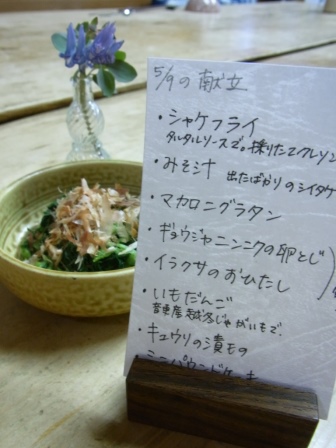 5/9の献立
・シャケフライ
タルタルソースで。採りたてクレソン
・みそ汁 出たばかりのシイタケ
・マカロニグラタン
・ギョウジャニンニクの卵とじ
・イラクサのおひたし
・いもだんご
音更産越冬じゃがいもで。
・キュウリの漬もの
ミニパウンドケーキ